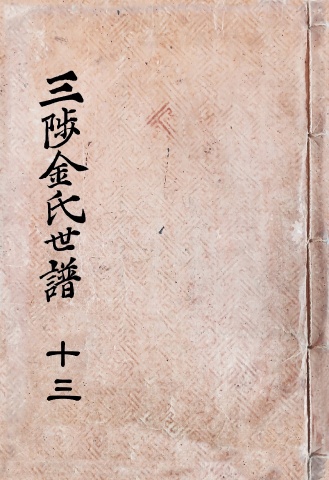 三陟金氏世譜
十三